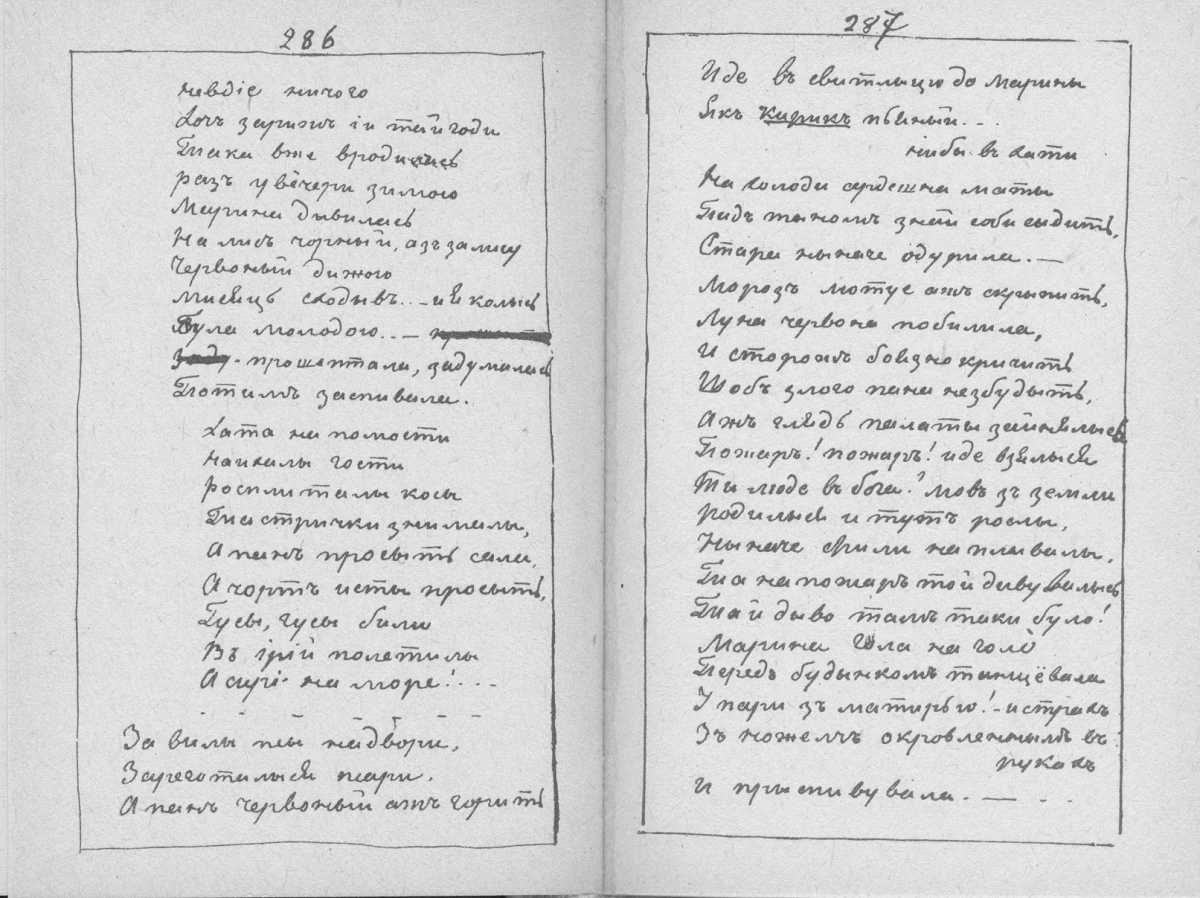 286
невдіе ничого
Хочъ зарижъ іи тай годи
Така вже вродилась
разъ увѐчери зимою
Марина дывилась
На лисъ чорный, азъ залису
Червоный дижого
мисяць сходывъ.. – и я колысь
Була молодою.. –
прошептала, задумалась
Потимъ заспивала.
Хата на помости
Наихалы гости
Росплиталы косы
Та стрички знималы,
А панъ просыть сала,
А чортъ исты просыть,
Гусы, гусы били
Въ ірій полетилы
А сирі на море!...
Завилы псы надвори,
Зареготалыся псари.
А панъ червоный ажъ горить
287
Иде въ свитлыцю до Марины
Якъ Кирикъ пьяный. . .
ниби въ хати
На холоди сердешна маты
Пидъ тыномъ знай соби сыдить,
Стара ныначе одурила. —
Морозъ лютуе ажъ скрыпить,
Луна червона побилила,
И сторожъ боязно кричить
Шобъ злого пана незбудыть,
Ажъ глядь палаты зайнялысь
Пожаръ! пожаръ! иде взялыся
Ти люде въ бога! мовъ зъ земли
Родилыся и тутъ рослы,
Ныначе хвили наплывалы,
Та на пожаръ той дивувалысь
Тай дыво тамъ таки було!
Марина гола на голо
Передъ будынкомъ танцёвала
У пари зъ матирью! – и страхъ
Зъ ножемъ окровленнымъ въ
рукахъ
И прыспивувала. — . .